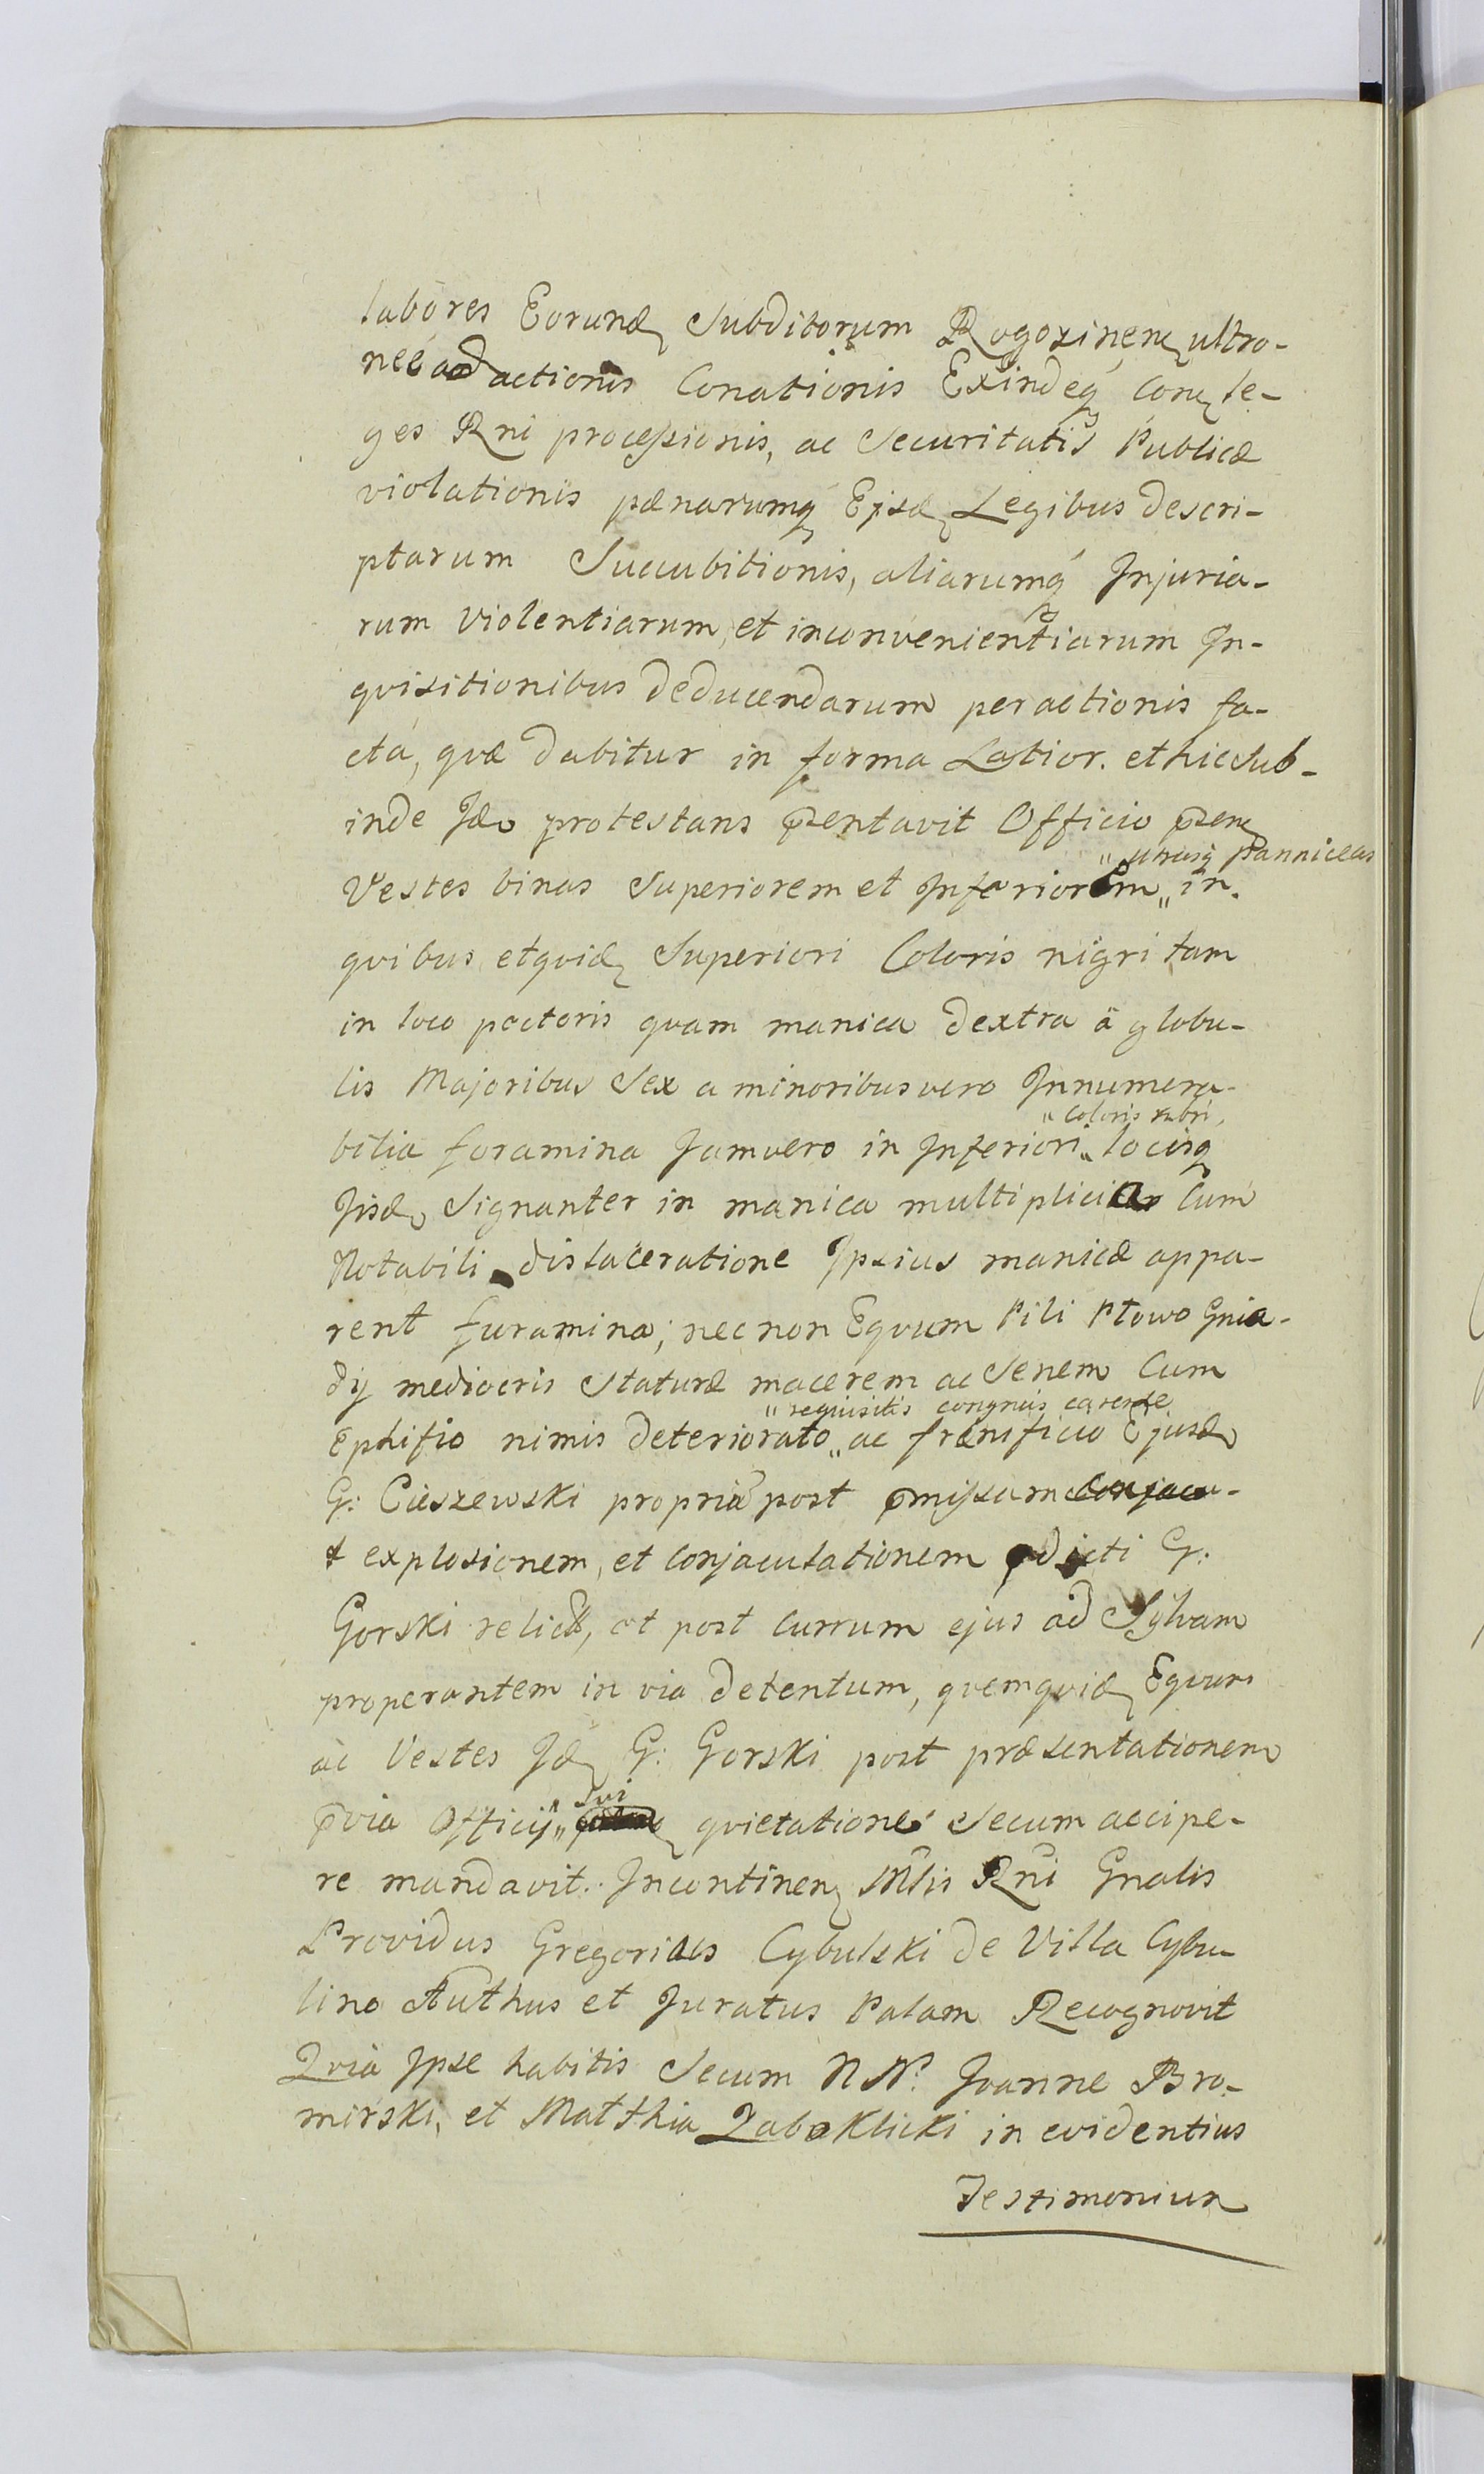 labores Eorund. Subditorum Rogozinen. ultro-
nee ad actionis Conationis Exindeq. Con. le-
ges Rni processionis, ac Securitatis Publicæ
violationis pænarumq. Ejsd. Legibus descri-
ptarum Succubitionis, aliarumq. Injuria-
rum violentiarum, et inconvenientiarum In-
quisitionibus deducendarum peractionis fa-
cta, quæ dabitur in forma Latior. et hic sub-
inde Id. protestans p̃zentavit Officio p̃zen.
" utrasq. panniceas
Vestes binas Superiorem et Inferiorem „ in
quibus, etquid. Superiori Coloris nigri tam
in loco pectoris quam manica dextra a globu-
lis Majoribus Sex a minoribus vero Innumera-
" Coloris rubri,
bilia foramina Jamvero in Inferiori „ locisq.
Jisd. Signanter in manica multiplicia Cum
Notabili dislaceratione Ipsius manicæ appa-
rent furamina; nec non Equum Pili Płowo Gnia-
dÿ mediocris Staturæ macerem ac Senem Cum
" requisitis congruis carente
Ephifio nimis deteriorato „ ac frænificio Ejusd.
G: Cieszewski propria post p̃missam Conjacu-
t explosionem, et Conjaculationem p̃dicti G:
Gorski relict, et post Currum ejus ad Sylvam
properantem in via detentum, quemquid. Equum
ac Vestes Jd. G: Gorski post præsentationem
" Sui
p̃via Officij „ quietatione Secum accipe-
re mandavit. Incontinen. Mlis Rni Gnalis
Providus Gregorius Cybulski de Villa Cybu-
lino Authus et Juratus Palam Recognovit
Quia Ipse habitis Secum N N. Joanne Bro-
mirski, et Matthia Zaboklicki in evidentius
Testimonium